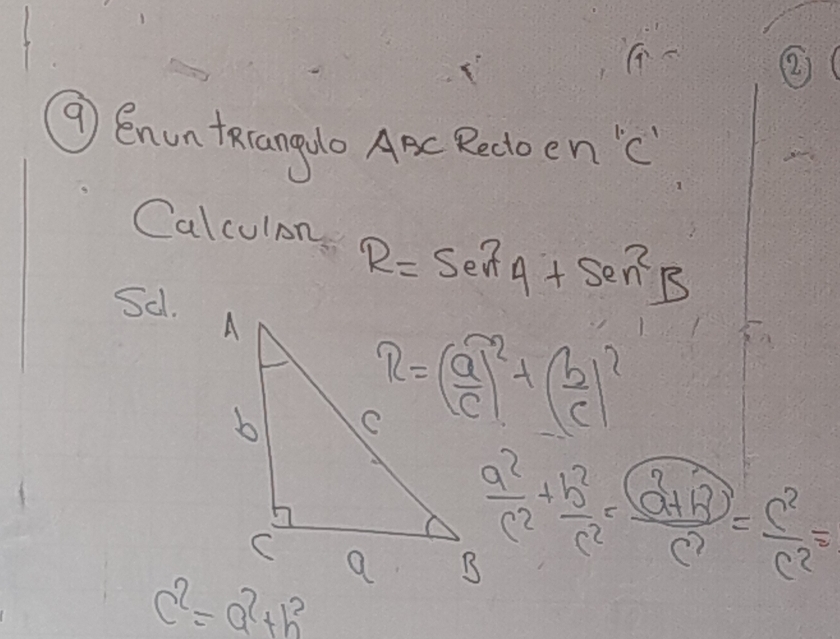 ② (
⑨ En un tRiangulo ABC Recto en "C"
Calcular R = Sen²A + Sen²B
Sol.
A
R = (a/c)² + (b/c)²
b
c
a²/c² + b²/c² = a²+b²/c² = c²/c² =
C
a
B
c² = a²+b²